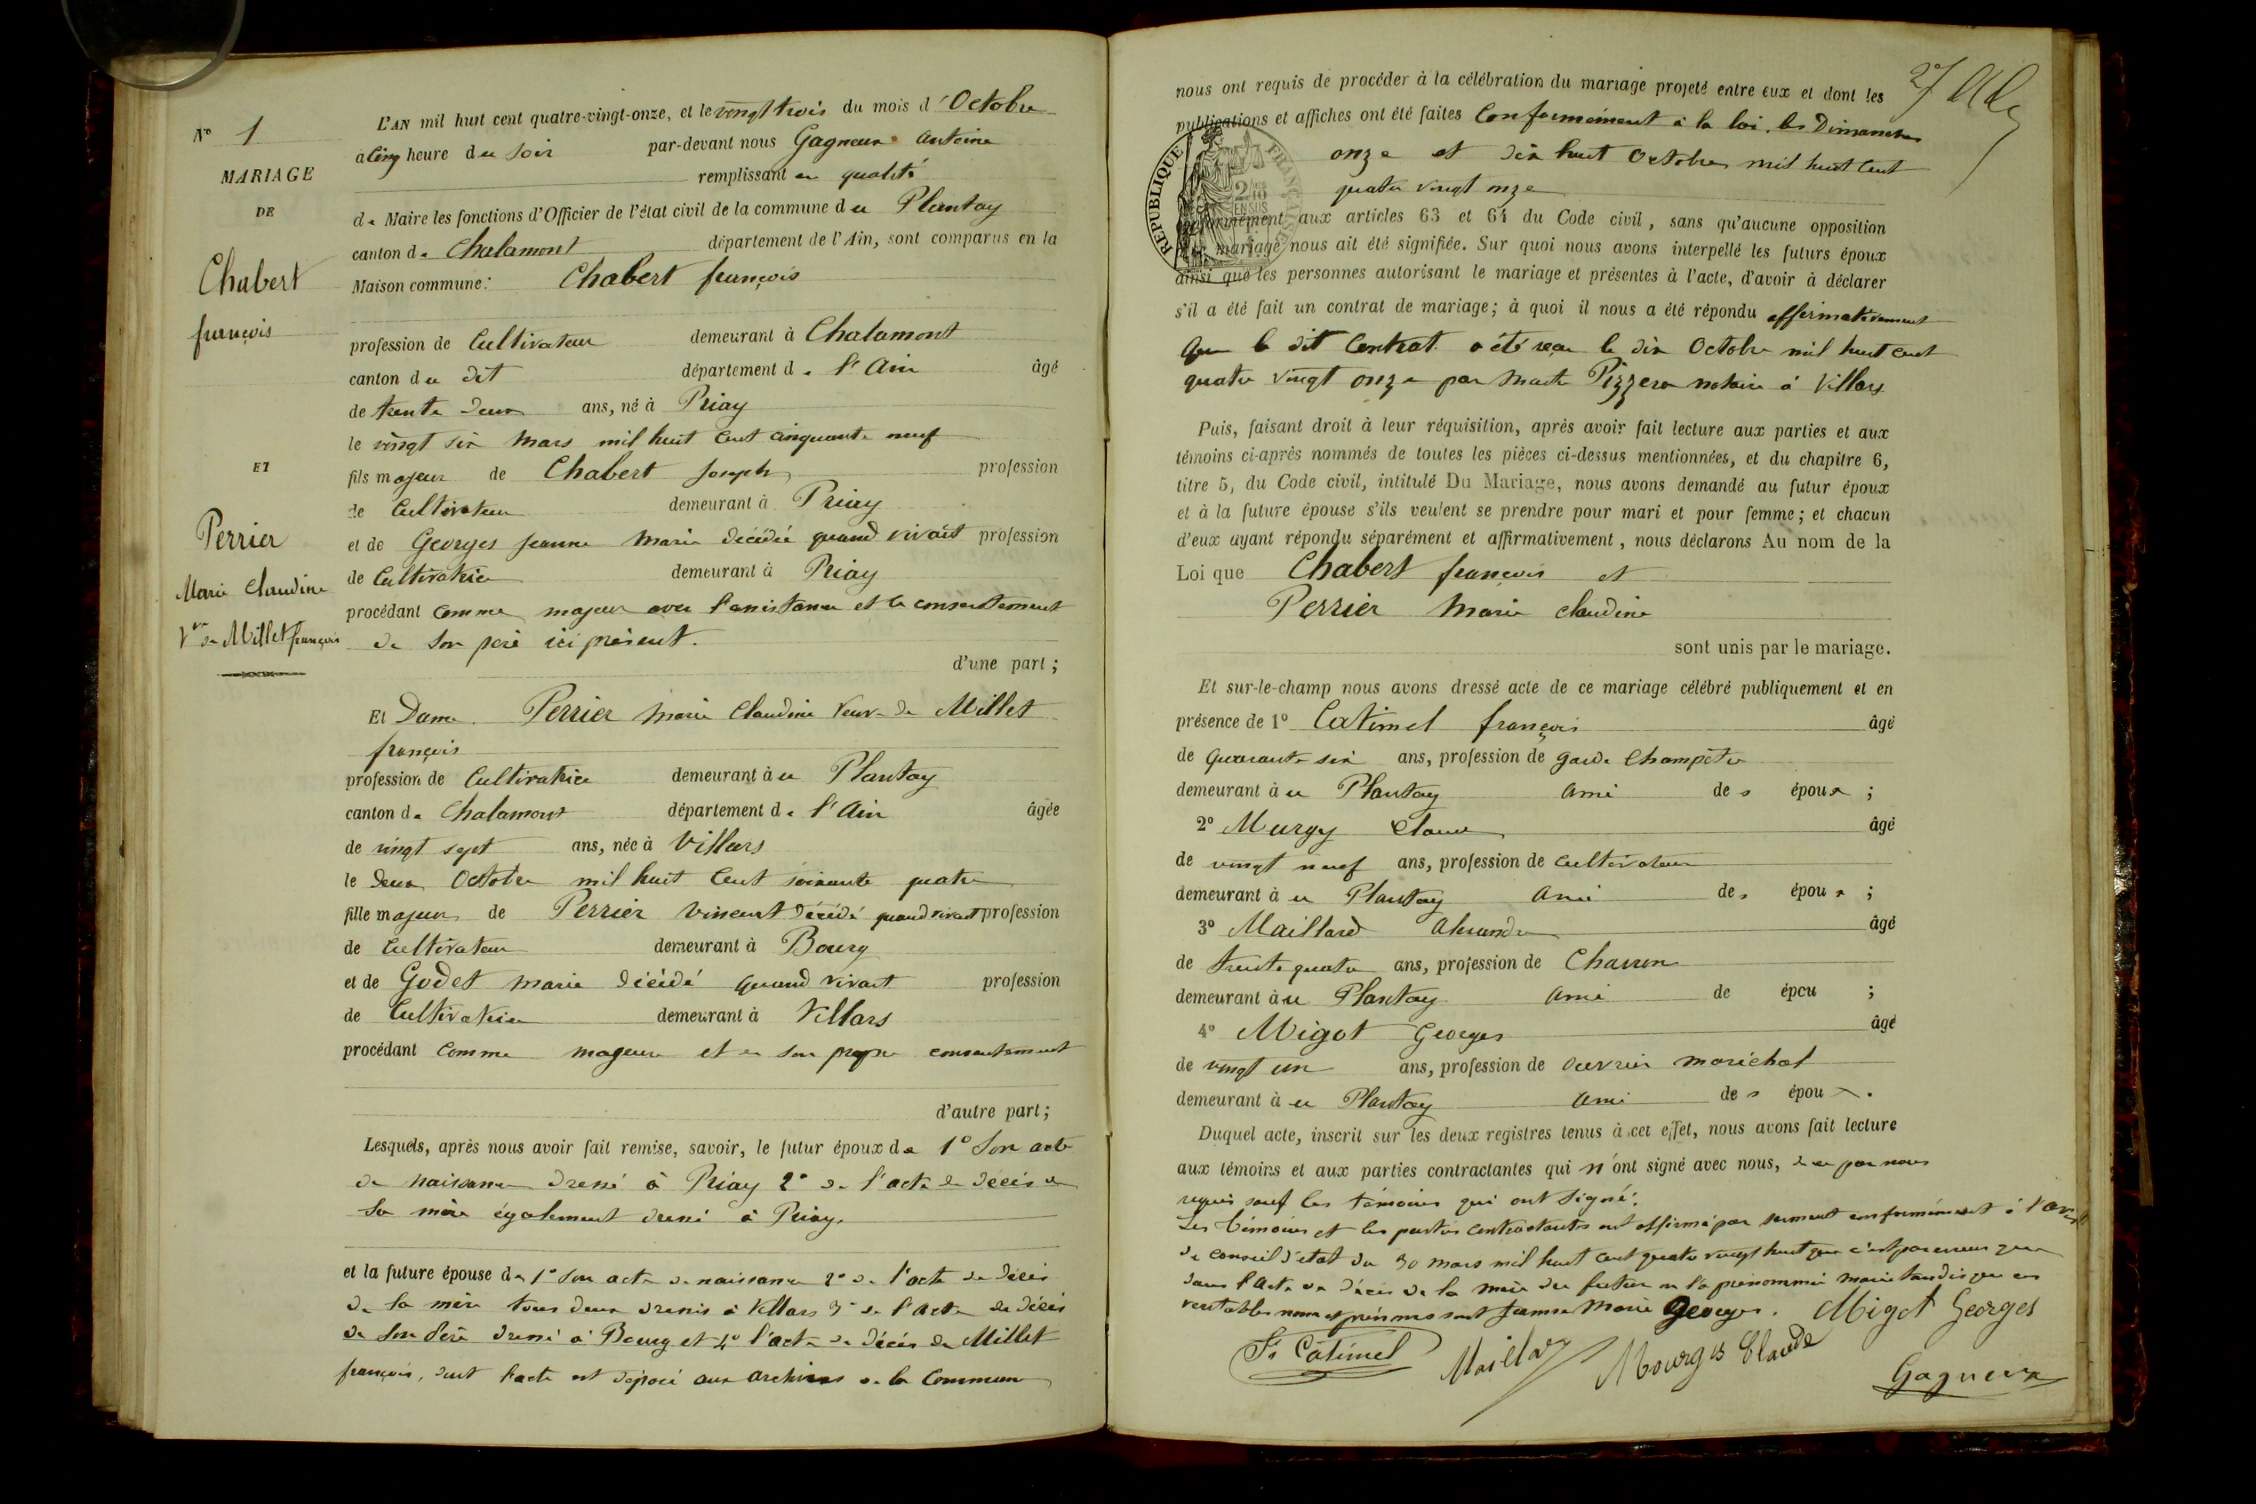 N° 1
MARIAGE
DE
Chabert
françois
ET
Perrier
Marie Claudine
Vve de Millet françois
L'AN mil huit cent quatre-vingt-onze, et le vingt trois du mois d'Octobre
à cinq heure du soir par-devant nous Gagneux Antoine
remplissant en qualité
de Maire les fonctions d'Officier de l'état civil de la commune du Plantay
canton de Chalamont département de l'Ain, sont comparus en la
Maison commune: Chabert françois
profession de Cultivateur demeurant à Chalamont
canton du dit département de l'Ain âgé
de trente deux ans, né à Priay
le vingt six Mars mil huit cent cinquante neuf
fils majeur de Chabert Joseph profession
de Cultivateur demeurant à Priay
et de Georges Jeanne Marie décédée quand vivait profession
de Cultivatrice demeurant à Priay
procédant comme majeur avec l'assistance et le consentement
de son père ici présent.
d'une part;
Et Dame Perrier Marie Claudine Veuve de Millet
françois
profession de Cultivatrice demeurant à u Plantay
canton de Chalamont département de l'Ain âgée
de vingt sept ans, née à Villars
le deux Octobre mil huit cent soixante quatre
fille majeure de Perrier Vincent décédé quand vivait profession
de Cultivateur demeurant à Bourg
et de Godet Marie décédé quand vivait profession
de Cultivatrice demeurant à Villars
procédant comme mageure et de son propre consentement
d'autre part;
Lesquels, après nous avoir fait remise, savoir, le futur époux de 1° Son acte
de naissance dressé à Priay 2° de l'acte de décès de
sa mère également dressé à Priay.
et la future épouse de 1° son acte de naissance 2° de l'acte de décès
de sa mère tous deux dressés à Villars 3° de l'acte de décès
de son Père dressé à Bourg et 4° l'acte de décès de Millet
françois, dont l'acte est déposé aux archives de la Commune
nous ont requis de procéder à la célébration du mariage projeté entre eux et dont les
publications et affiches ont été faites Conformément à la loi, les Dimanches
onze et dix huit Octobre mil huit cent
quatre vingt onze
RÉPUBLIQUE FRANÇAISE
conformément aux articles 63 et 64 du Code civil, sans qu'aucune opposition
mariage nous ait été signifiée. Sur quoi nous avons interpellé les futurs époux
ainsi que les personnes autorisant le mariage et présentes à l'acte, d'avoir à déclarer
s'il a été fait un contrat de mariage; à quoi il nous a été répondu affirmativement
que le dit Contrat a été reçu le dix Octobre mil huit cent
quatre vingt onze par Maitre Pizzera notaire à Villars
Puis, faisant droit à leur réquisition, après avoir fait lecture aux parties et aux
témoins ci-après nommés de toutes les pièces ci-dessus mentionnées, et du chapitre 6,
titre 5, du Code civil, intitulé Du Mariage, nous avons demandé au futur époux
et à la future épouse s'ils veulent se prendre pour mari et pour femme; et chacun
d'eux ayant répondu séparément et affirmativement, nous déclarons Au nom de la
Loi que Chabert françois et
Perrier Marie claudine
sont unis par le mariage.
Et sur-le-champ nous avons dressé acte de ce mariage célébré publiquement et en
présence de 1° Catimel françois âgé
de quarante six ans, profession de garde Champêtre
demeurant à u Plantay ami des époux;
2° Murgy Claude âgé
de vingt neuf ans, profession de cultivateur
demeurant à u Plantay ami des époux;
3° Maillard Alexandre âgé
de trente quatre ans, profession de Charron
demeurant à u Plantay ami de épou ;
4° Migot Georges âgé
de vingt un ans, profession de ouvrier maréchal
demeurant à u Plantay ami des époux.
Duquel acte, inscrit sur les deux registres tenus à cet effet, nous avons fait lecture
aux témoins et aux parties contractantes qui n'ont signé avec nous, de ce par nous
requis sauf les témoins qui ont signé.
Les témoins et les parties contractantes ont affirmé par serment conformément à l'avis
de conseil d'état du 30 mars mil huit cent quatre vingt huit que c'est par erreur que
dans l'acte de décès de la mère du futur on l'a prénommée Marie tandis que ses
veritables noms et prénoms sont Jeanne Marie Georges. Migot Georges
Fs Catimel Maillard Mourgis Claude
Gagneux